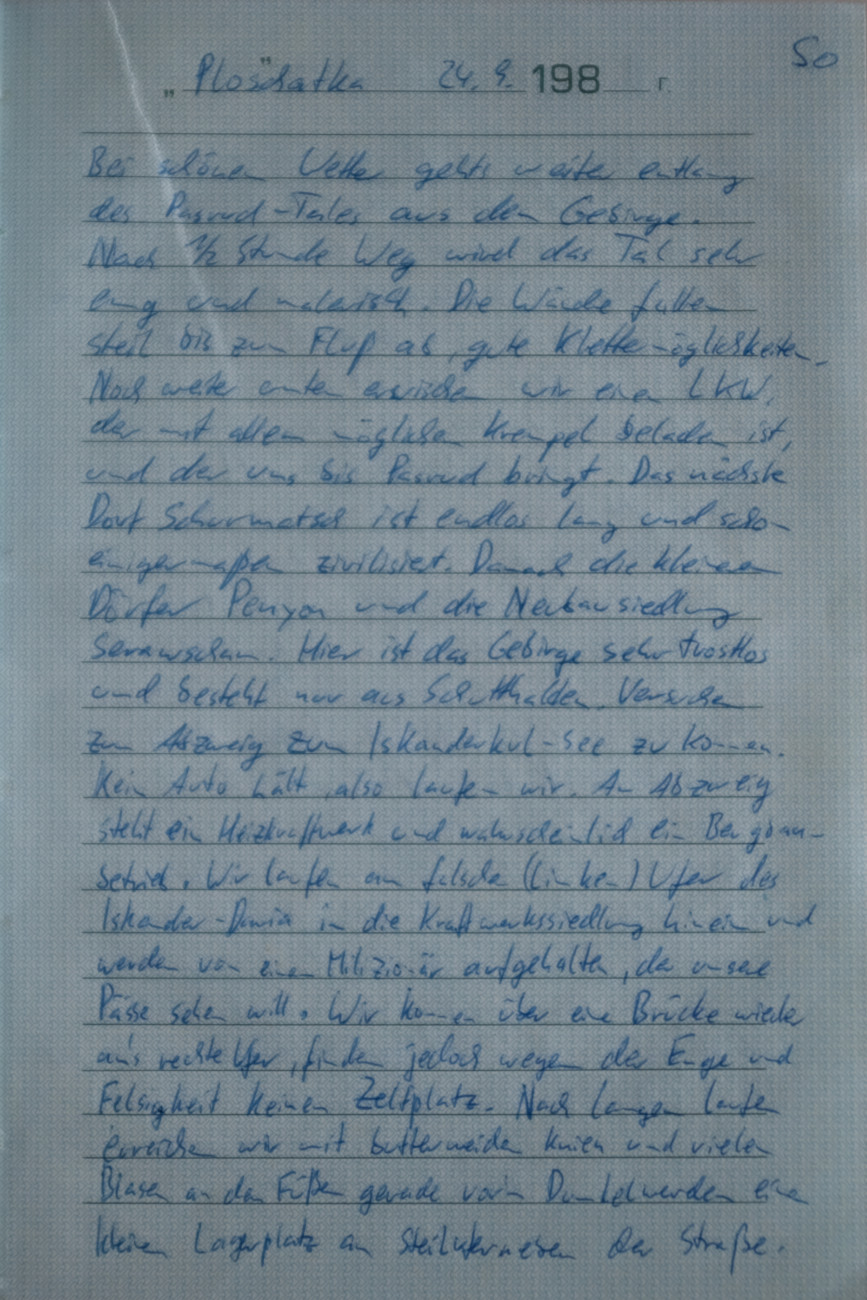 So
„Ploschatka" 24. 9. 198 г.
Bei schönem Wetter gehts weiter entlang
des Pasrud-Tales aus dem Gebirge.
Nach 1/2 Stunde Weg wird das Tal sehr
eng und malerisch. Die Wände fallen
steil bis zum Fluß ab, gute Klettermöglichkeiten.
Noch weiter unten erreichen wir einen LKW,
der mit allem möglichen Krempel beladen ist,
und der uns bis Pasrud bringt. Das nächste
Dorf Schurmatsch ist endlos lang und scho-
einigermaßen zivilisiert. Danach die kleinen
Dörfer Penyon und die Neubausiedlung
Serawschan. Hier ist das Gebirge sehr trostlos
und besteht nur aus Schutthalden. Versuchen
zum Abzweig zum Iskanderkul-See zu kommen.
Kein Auto hält, also laufen wir. Am Abzweig
steht ein Heizkraftwerk und wahrscheinlich ein Bergbau-
betrieb. Wir laufen am falschen (linken) Ufer des
Iskander-Darja in die Kraftwerkssiedlung hinein und
werden von einem Milizionär aufgehalten, der unsere
Pässe sehen will. Wir kommen über eine Brücke wieder
ans rechte Ufer, finden jedoch wegen der Enge und
Felsigkeit keinen Zeltplatz. Nach langem Laufen
erreichen wir mit butterweichen Knien und vielen
Blasen an den Füßen gerade vorm Dunkelwerden einen
kleinen Lagerplatz am Steilufer neben der Straße.